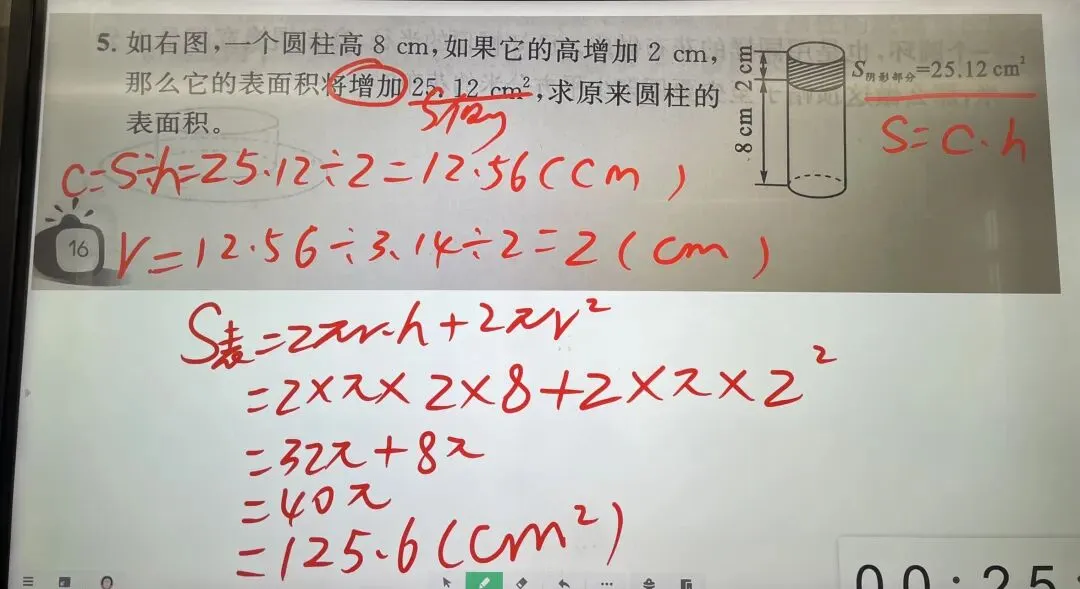 5. 如右图,一个圆柱高 8 cm,如果它的高增加 2 cm,
那么它的表面积将增加 25.12 cm²,求原来圆柱的
表面积。
2 cm
8 cm
S阴影部分=25.12 cm²
S=C·h
C=S÷h=25.12÷2=12.56(cm)
16
r=12.56÷3.14÷2=2(cm)
S表=2πr·h+2πr²
=2×π×2×8+2×π×2²
=32π+8π
=40π
=125.6(cm²)
00:25